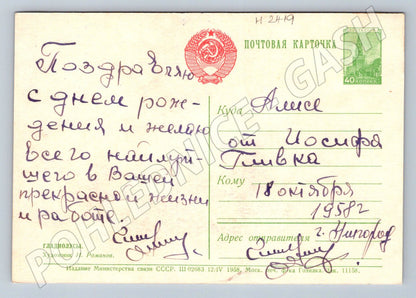 И 2419
ПОЧТОВАЯ КАРТОЧКА
40
Поздравляю
с днем рож-
дения и желаю
всего наилуч-
шего в Вашей
прекрасной жизни
и работе.
Куда Алисе
от Иосифа
Гливка
Кому
18 октября
1958 г
Адрес отправителя
г. Ужгород
ГЛАДИОЛУСЫ.
Художник Н. Рожанов.
Издание Министерства связи СССР. Ш 02683. 12/IV 1958. Моск. печ. ф-ка Гознака. Зак. 11158.
POHLEDNICE - GASH